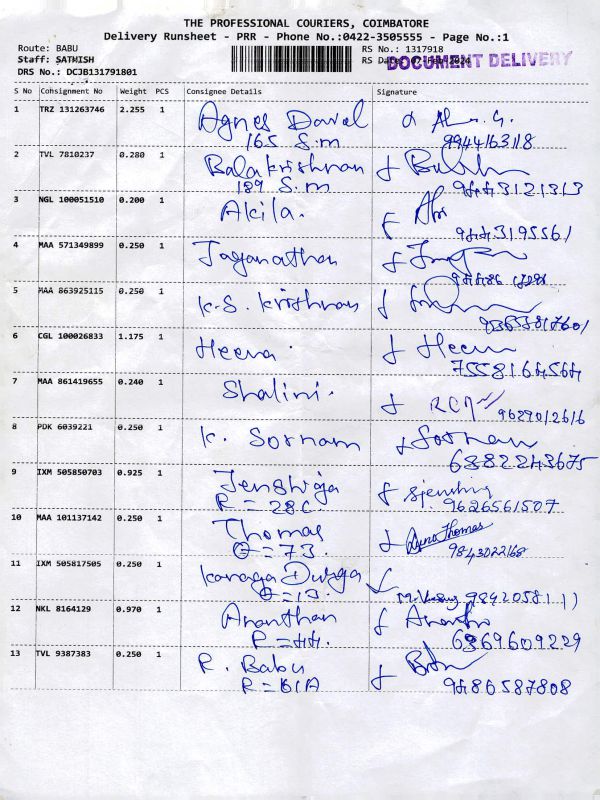 THE PROFESSIONAL COURIERS, COIMBATORE
Delivery Runsheet - PRR - Phone No.:0422-3505555 - Page No.:1
Route: BABU RS No.: 1317918
Staff: SATHISH RS Date: 07-Feb-2024 DOCUMENT DELIVERY
DRS No.: DCJB131791801
S No Consignment No Weight PCS Consignee Details Signature
1 TRZ 131263746 2.255 1 Agnes Daval
165 S.m 9944163118
2 TVL 7810237 0.280 1 Balakrishnan
189 S.m
3 NGL 100051510 0.200 1 Akila.
4 MAA 571349899 0.250 1 Jaganathan
5 MAA 863925115 0.250 1 K.S. Krishnan
6 CGL 100026833 1.175 1 Heena. Heena
7558164564
7 MAA 861419655 0.240 1 Shalini.
9629012616
8 PDK 6039221 0.250 1 K. Sornam Sornam
6382243675
9 IXM 505850703 0.925 1 Jenshija
R = 28C 9626561507
10 MAA 101137142 0.250 1 Thomas Thomas
= 73. 9843022168
11 IXM 505817505 0.250 1 Kanaga Durga
= 13.
12 NKL 8164129 0.970 1 Ananthan
R = 44. 6369609229
13 TVL 9387383 0.250 1 R. Babu
R = 61A 9486587808